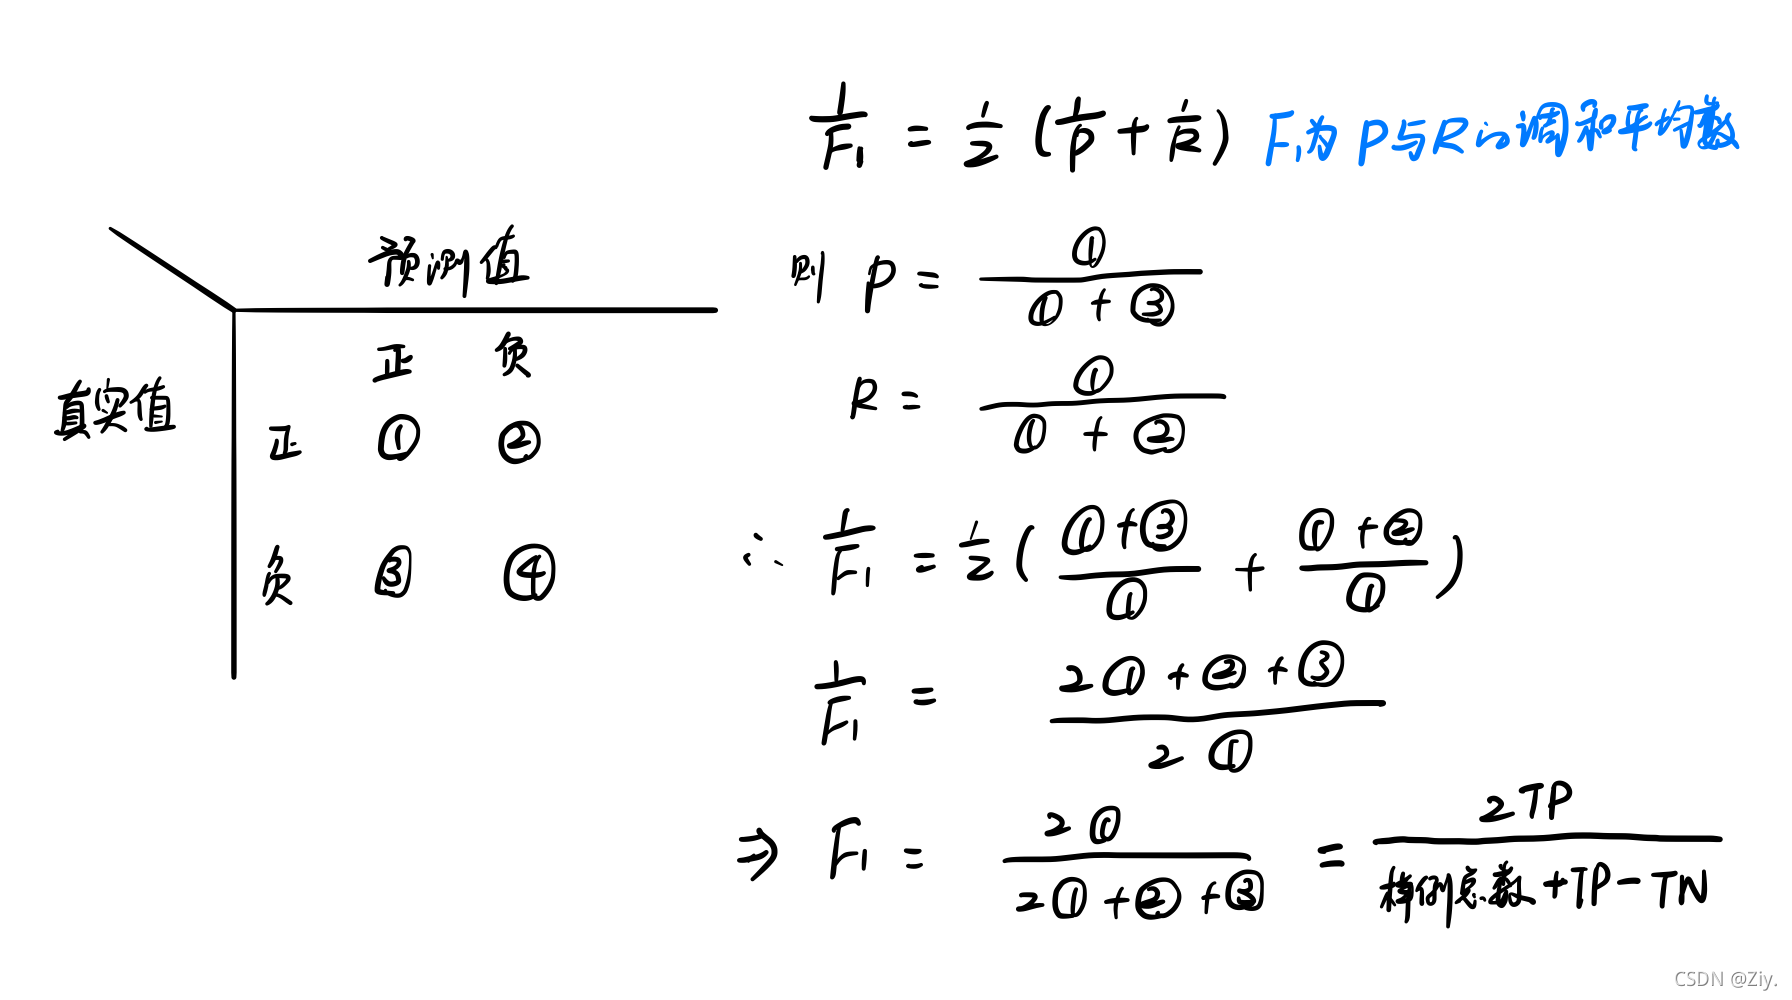 1/F₁ = 1/2 (1/P + 1/R) F₁为 P与R的调和平均数
预测值
正 负
真实值
正 ① ②
负 ③ ④
则 P = ①/(①+③)
R = ①/(①+②)
∴ 1/F₁ = 1/2 ( (①+③)/① + (①+②)/① )
1/F₁ = (2①+②+③)/(2①)
⇒ F₁ = 2①/(2①+②+③) = 2TP/(样例总数+TP-TN)
CSDN @Ziy.